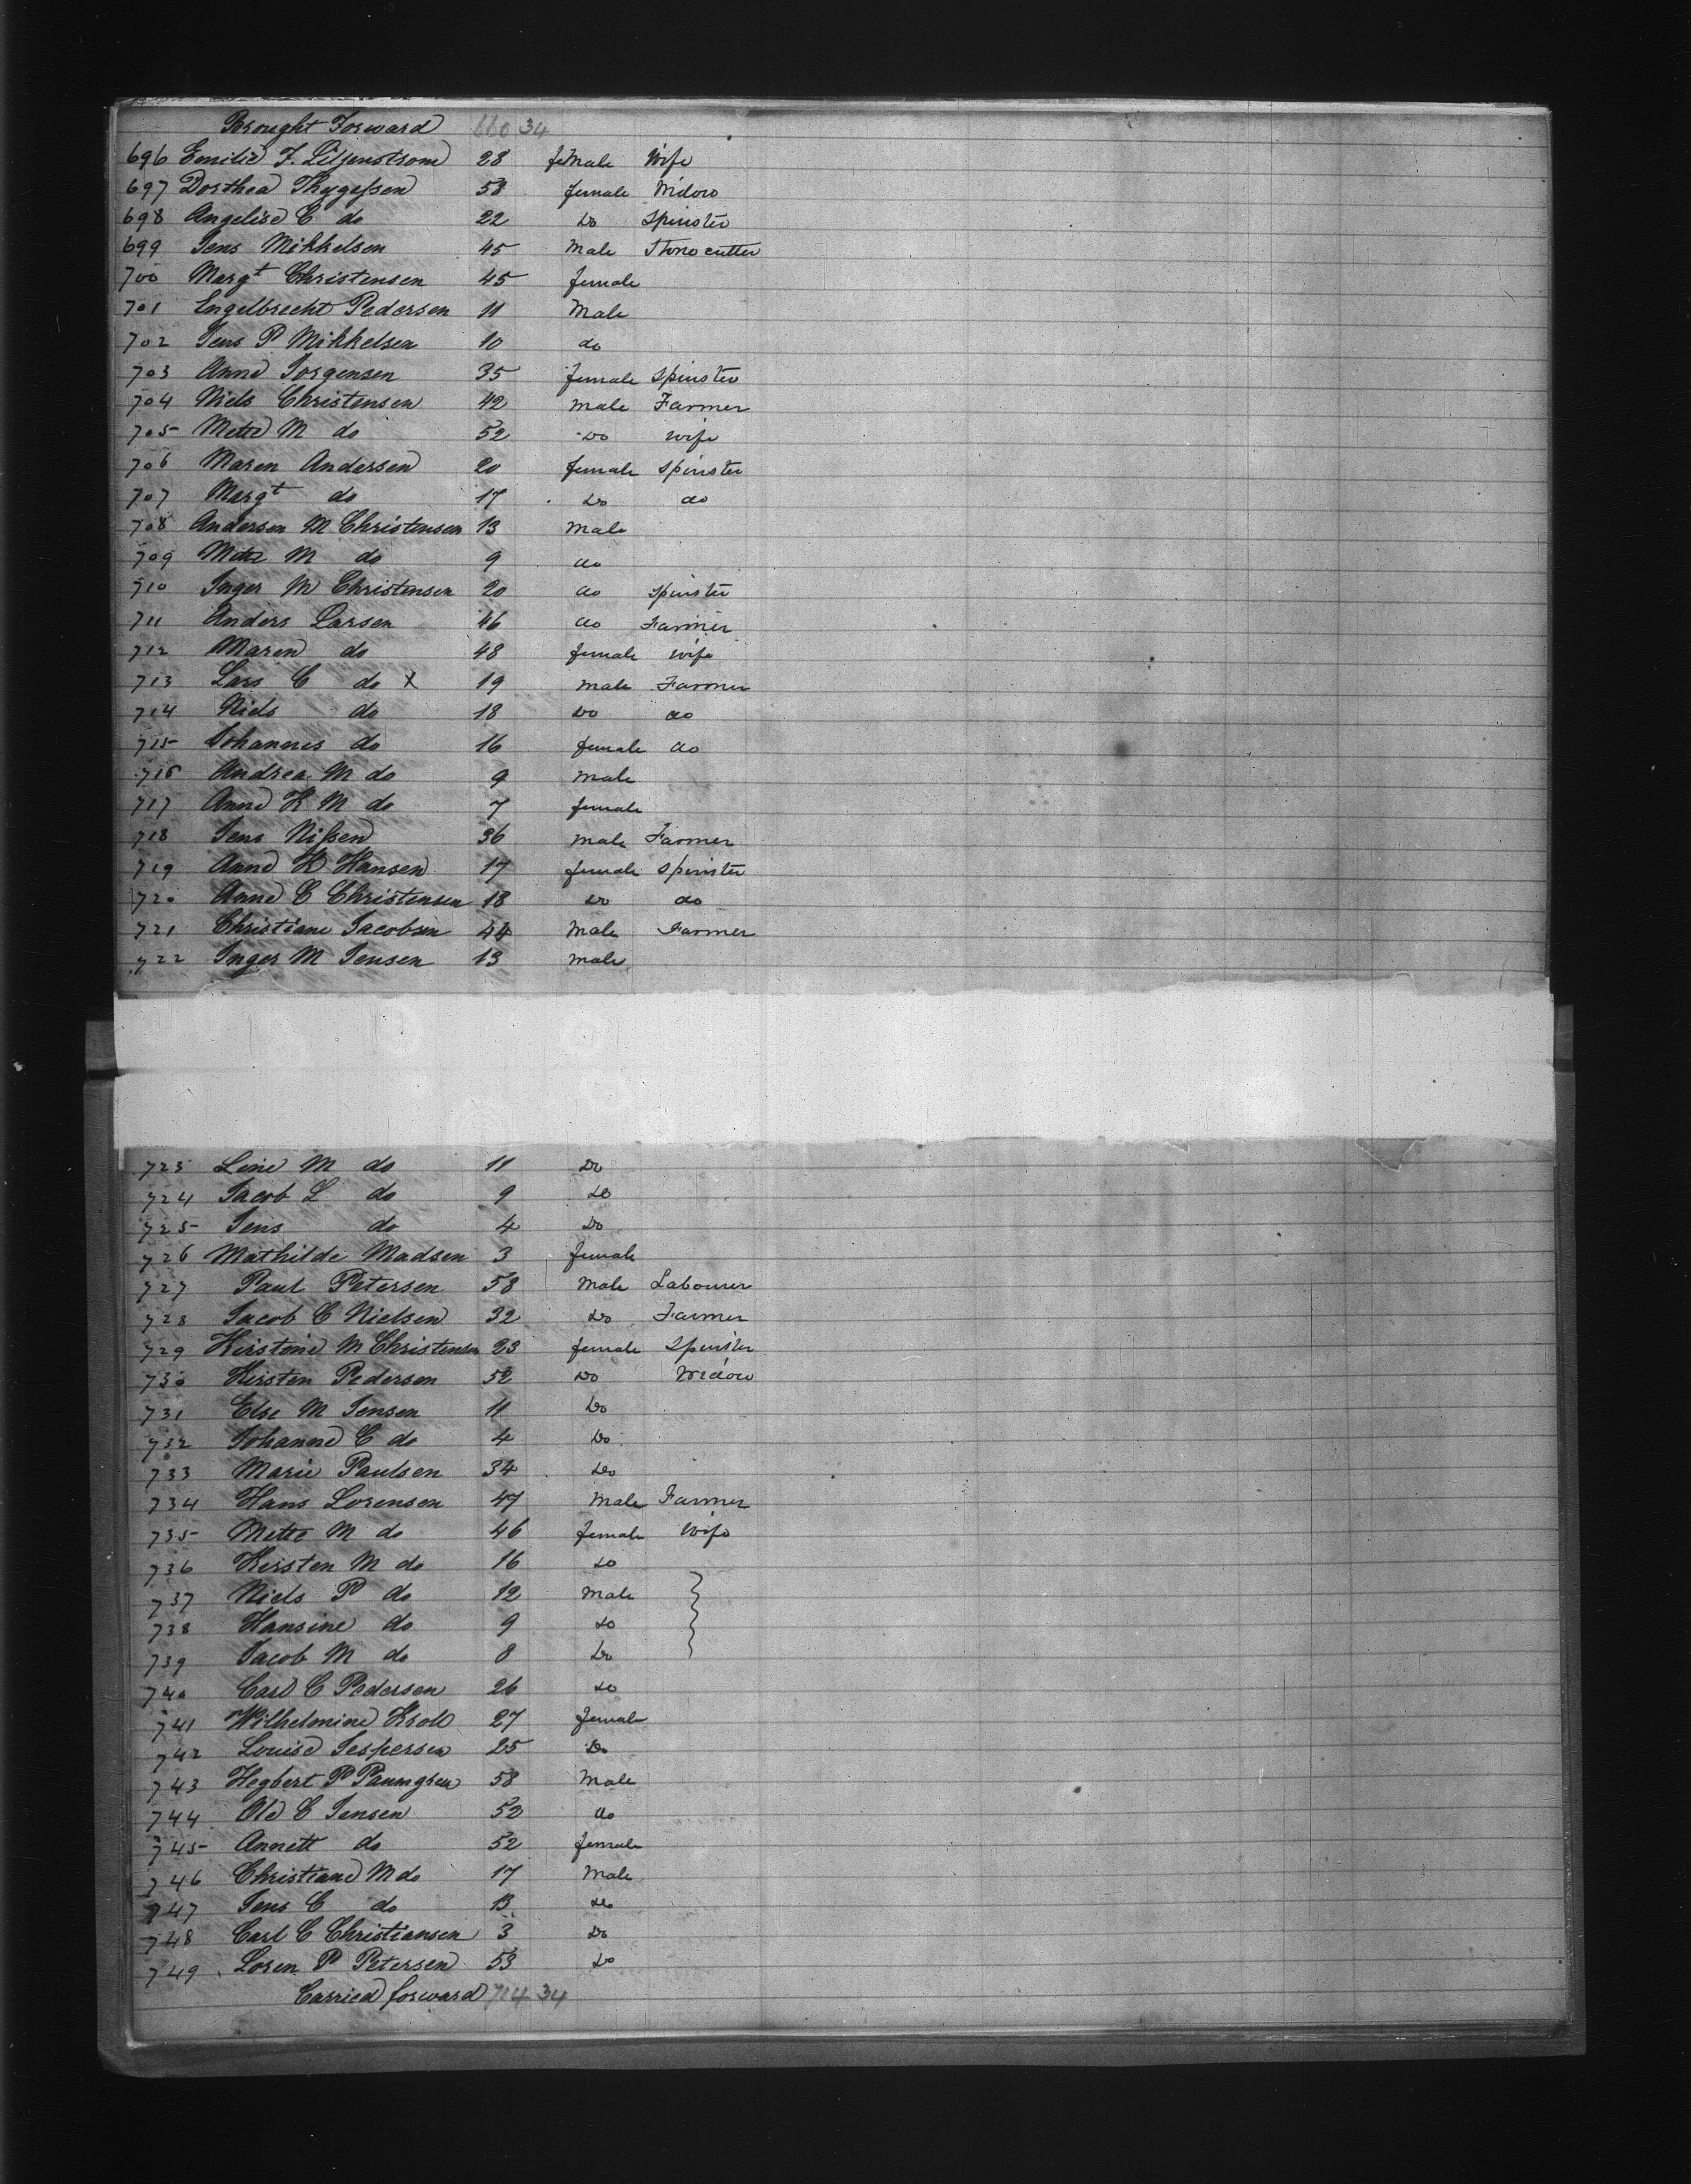 Brought Forward 660 34
696 Emilie F. Liljenstrom 28 female Wife
697 Dorthea Thygessen 58 female Widow
698 Angelise C do 22 Do Spinster
699 Jens Mikkelsen 45 Male Stone cutter
700 Margt Christensen 45 female
701 Engelbrecht Pedersen 11 Male
702 Jens P Mikkelsen 10 do
703 Anne Jorgensen 35 female Spinster
704 Niels Christensen 42 Male Farmer
705 Mette M do 52 Do Wife
706 Maren Andersen 20 female Spinster
707 Margt do 17 Do do
708 Andersen M Christensen 13 Male
709 Mette M do 9 do
710 Inger M Christensen 20 do Spinster
711 Anders Larsen 46 do Farmer
712 Maren do 48 female Wife
713 Lars C do X 19 Male Farmer
714 Niels do 18 Do do
715 Johannes do 16 female do
716 Andrea M do 9 Male
717 Anne K M do 7 female
718 Jens Nissen 36 Male Farmer
719 Anne K Hansen 17 female Spinster
720 Anne C Christensen 18 Do do
721 Christiane Jacobsen 44 Male Farmer
722 Inger M Jensen 13 Male
723 Line M do 11 Do
724 Jacob L do 9 Do
725 Jens do 4 Do
726 Mathilde Madsen 3 female
727 Paul Petersen 58 Male Labourer
728 Jacob C Nielsen 32 Do Farmer
729 Kirstine M Christensen 23 female Spinster
730 Kirsten Pedersen 52 Do Widow
731 Else M Jensen 11 Do
732 Johanne C do 4 Do
733 Marie Paulsen 34 Do
734 Hans Lorensen 47 Male Farmer
735 Mette M do 46 female Wife
736 Kirsten M do 16 Do
737 Niels P do 12 Male
738 Hansine do 9 Do
739 Jacob M do 8 Do
740 Carl C Pedersen 26 Do
741 Wilhelmine Kroll 27 female
742 Louise Jespersen 25 Do
743 Hegbert P 58 Male
744 Ole C Jensen 52 do
745 Annett do 52 female
746 Christiane M do 17 Male
747 Jens C do 13 Do
748 Carl C Christiansen 3 Do
749 Loren P Petersen 53 Do
Carried forward 714 34